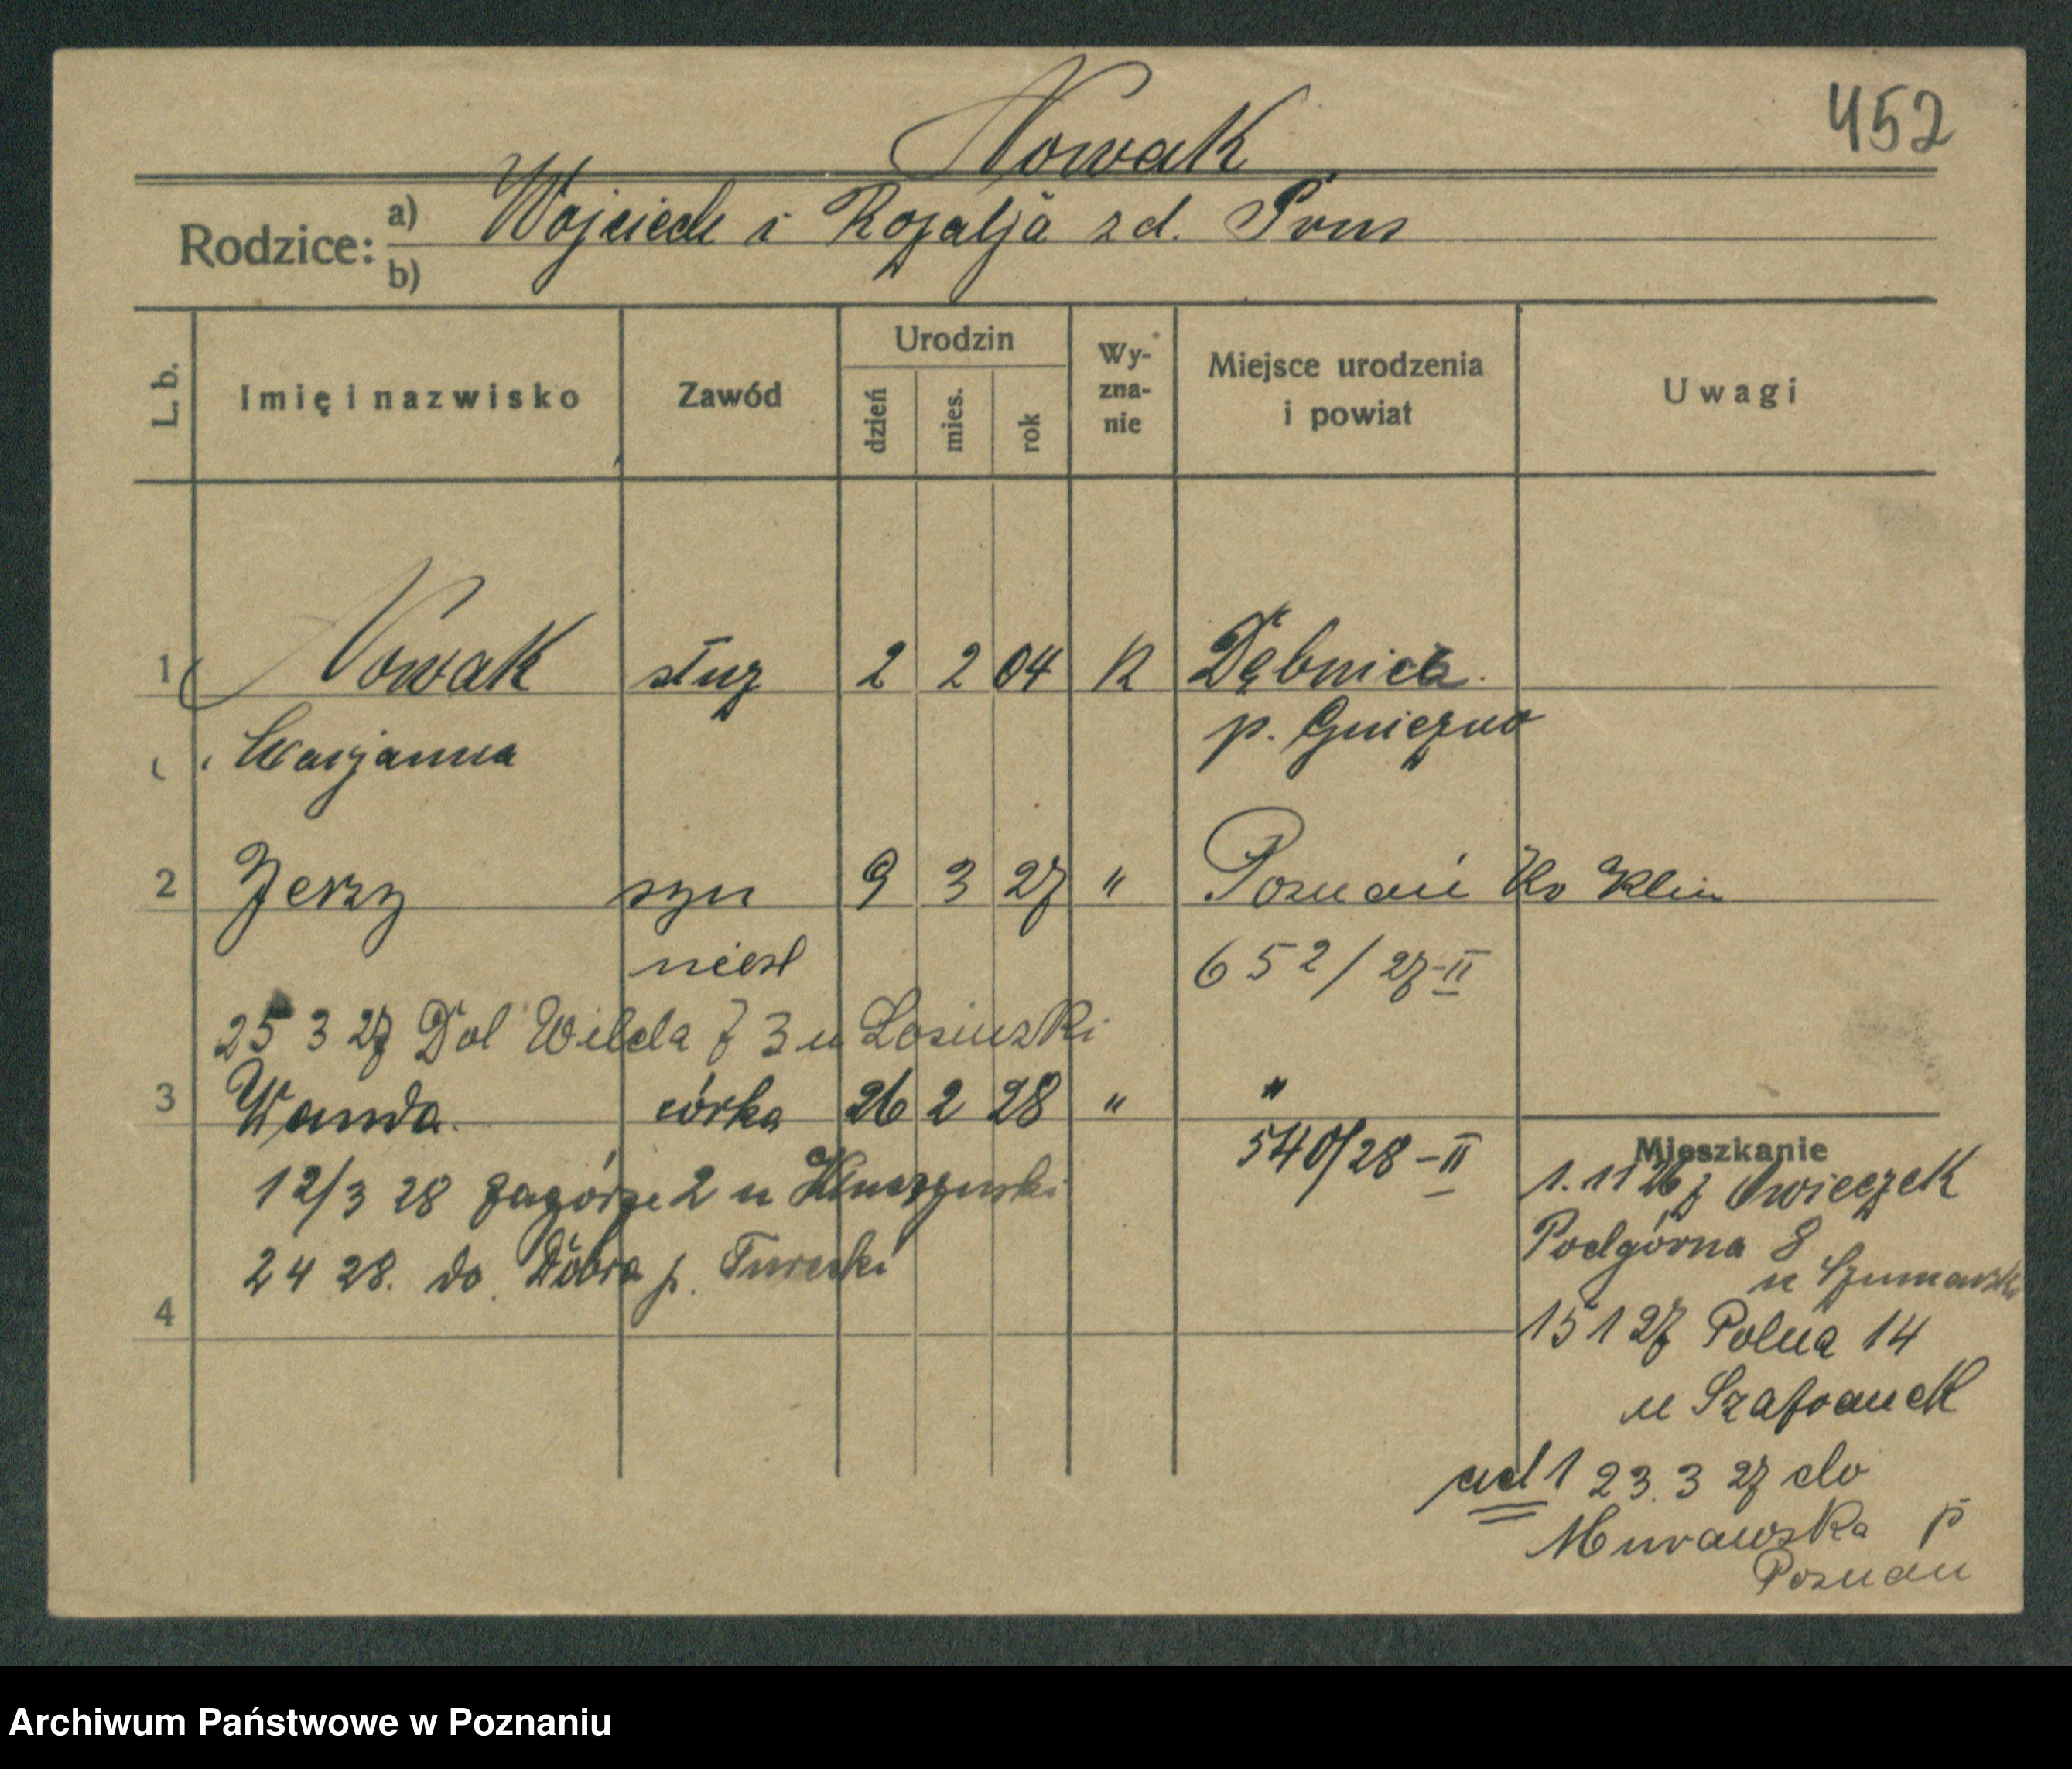 452
Nowak
Rodzice: a) Wojciech i Rozalja zd. Prus
b)
L. b. Imię i nazwisko Zawód Urodzin dzień mies. rok Wy-zna-nie Miejsce urodzenia i powiat Uwagi
1 Nowak służ 2 2 04 K Dębnica
Marjanna p. Gniezno
2 Jerzy syn 9 3 27 " Poznań Ko Klin
nieśl 652/27-II
25 3 27 Dol Wilda 7 3 u Losiuski
3 Wanda córka 26 2 28 " "
540/28-II
12/3 28 Zagórze 2 u
2 4 28. do Dobra p. Turecki
4
Mieszkanie
1. 11 26 z Owieczek
Podgórna 8
u
15 1 27 Polna 14
u Szafranek
ad 1 23. 3 27 do
Murawska p
Poznań
Archiwum Państwowe w Poznaniu